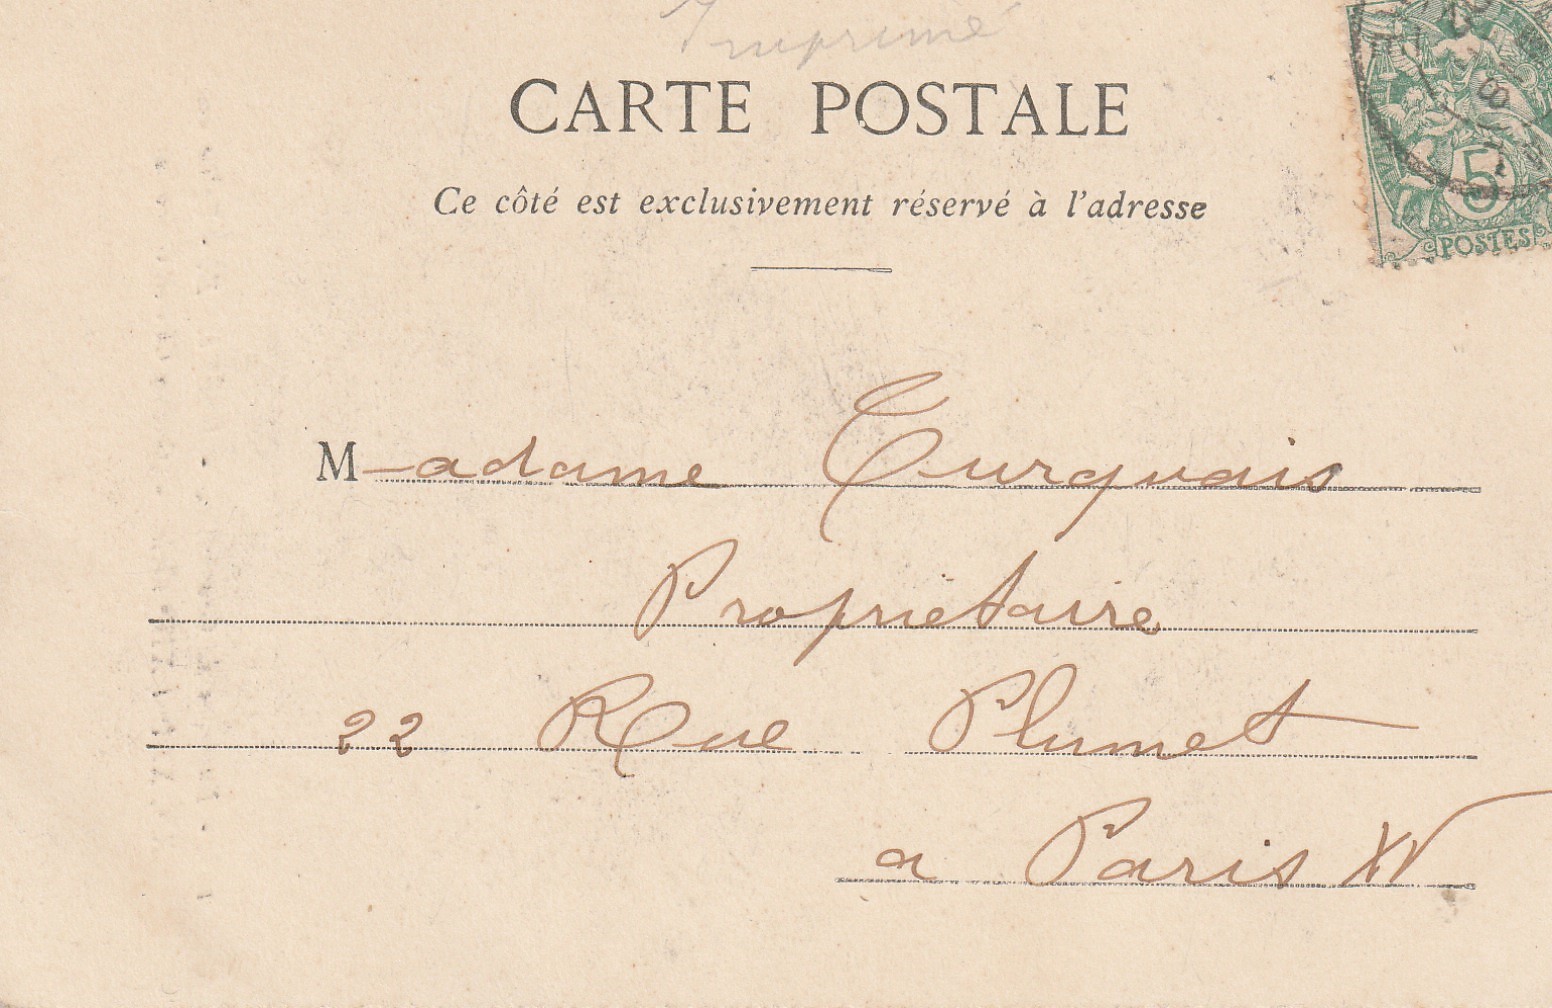 Imprimé
CARTE POSTALE
Ce côté est exclusivement réservé à l'adresse
5
POSTES
Madame Turquais
Propriétaire
22 Rue Plumet
a Paris XV